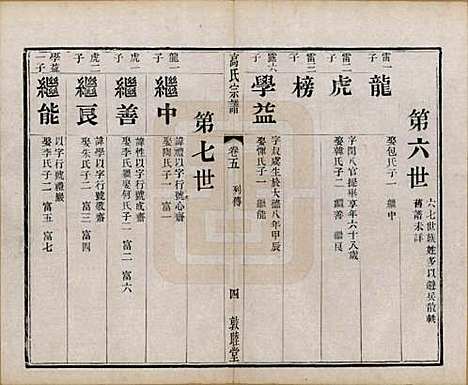 第六世
六七世族姓多以避兵散軼
舊譜未詳
雷一子
龍
娶包氏子一 繼中
雷二子
虎
字閏八官提舉享年六十八歲
娶韓氏子二 繼善 繼良
雷三子
榜
露六子
學益
字叔虔生於大德八年甲辰
娶 氏子一 繼能
高氏宗譜
卷五
列傳
四
敦睦堂
第七世
龍一子
繼中
諱 以字行號心齋
娶陶氏子一 富一
虎一子
繼善
諱性以字行號戒齋
娶李氏繼娶何氏子二 富二 富六
虎二子
繼良
諱學以字行號
娶朱氏子二 富三 富四
學益一子
繼能
以字行號禮巖
娶李氏子二 富五 富七